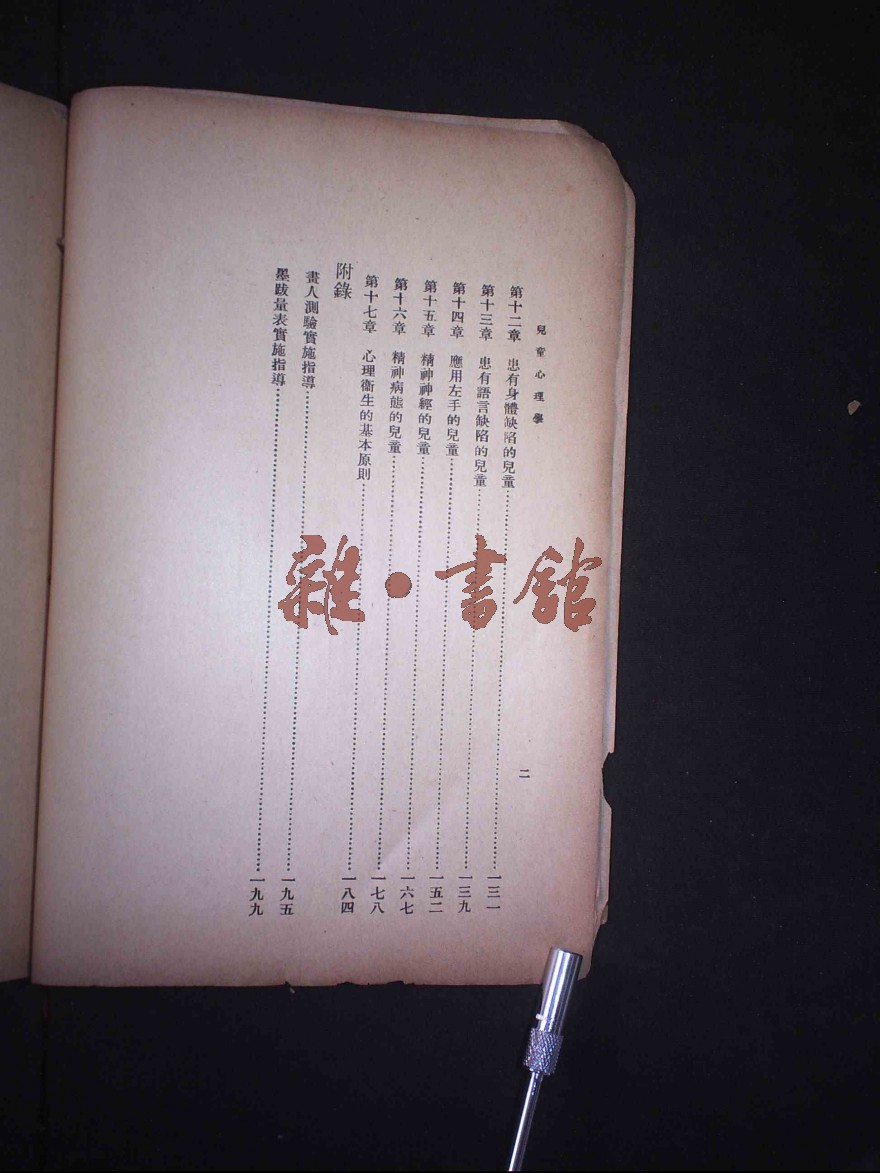 兒童心理學
二
第十二章 患有身體缺陷的兒童……一三一
第十三章 患有語言缺陷的兒童……一三九
第十四章 應用左手的兒童……一五二
第十五章 精神神經的兒童……一六七
第十六章 精神病態的兒童……一七八
第十七章 心理衞生的基本原則……一八四
附錄
畫人測驗實施指導……一九五
墨跋量表實施指導……一九九
雜·書館